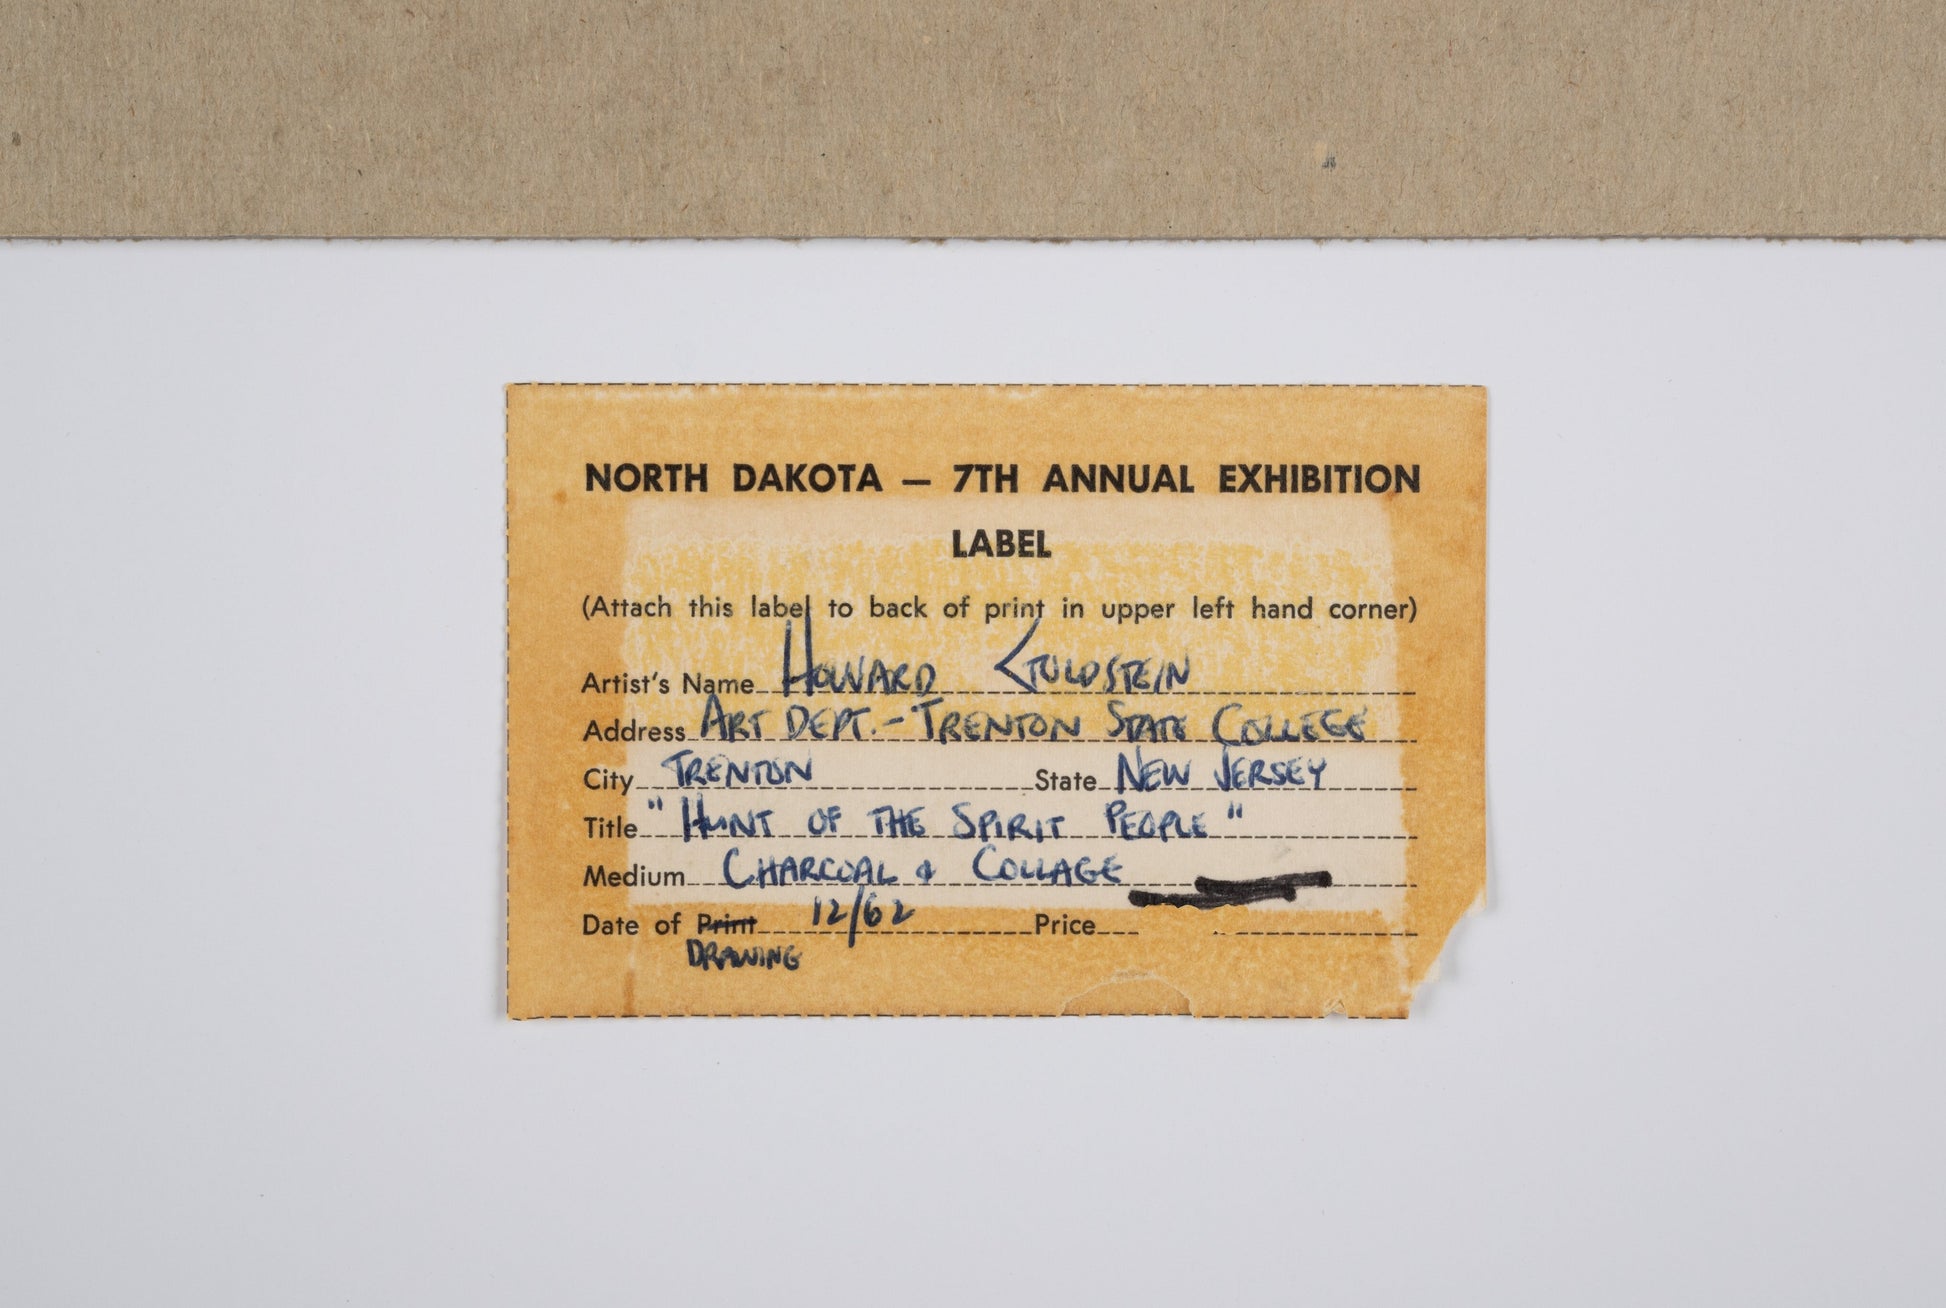 NORTH DAKOTA — 7TH ANNUAL EXHIBITION
LABEL
(Attach this label to back of print in upper left hand corner)
Artist's Name HOWARD GOLDSTEIN
Address ART DEPT. - TRENTON STATE COLLEGE
City TRENTON State NEW JERSEY
Title "HUNT OF THE SPIRIT PEOPLE"
Medium CHARCOAL & COLLAGE
Date of Print 12/62 Price
DRAWING